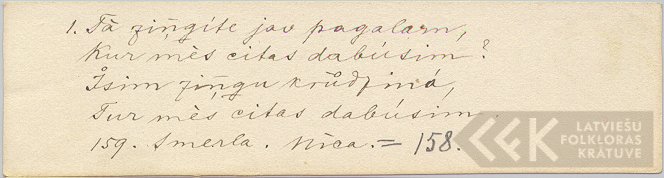 1. Tā ziņģīte jav pagalam,
Kur mēs citas dabūsim?
Īsim ziņģu krūdziņā,
Tur mēs citas dabūsim.
159. Smerla. Nīca. = 158.
LFK
LATVIEŠU
FOLKLORAS
KRĀTUVE